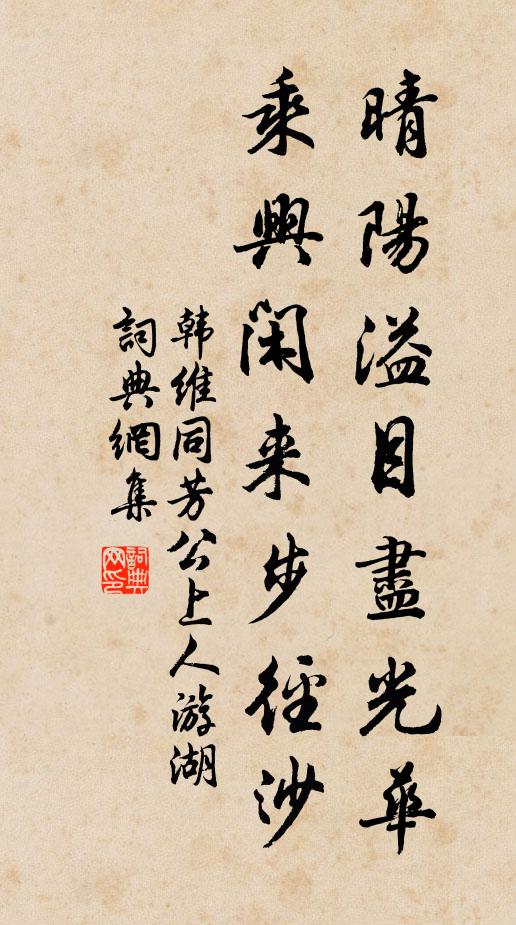 晴陽溢目盡光華
乘興閑来步徑沙
韩維同芳公上人游湖
詞典網集
詞典网印